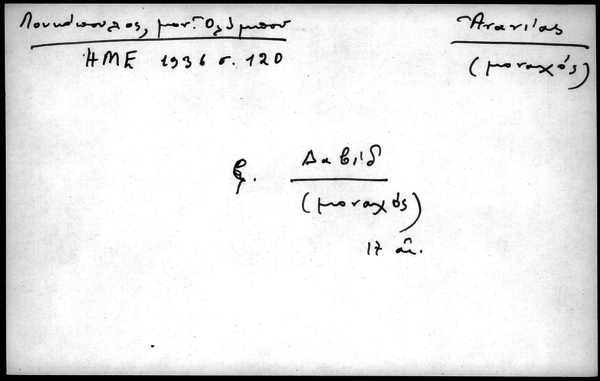 Λουκόπουλος, μον. Ὀλύμπου
ἩΜΕ 1936 σ. 120
Ἀνανίας
(μοναχός)
β. Δαβίδ
(μοναχός)
17 αἰ.